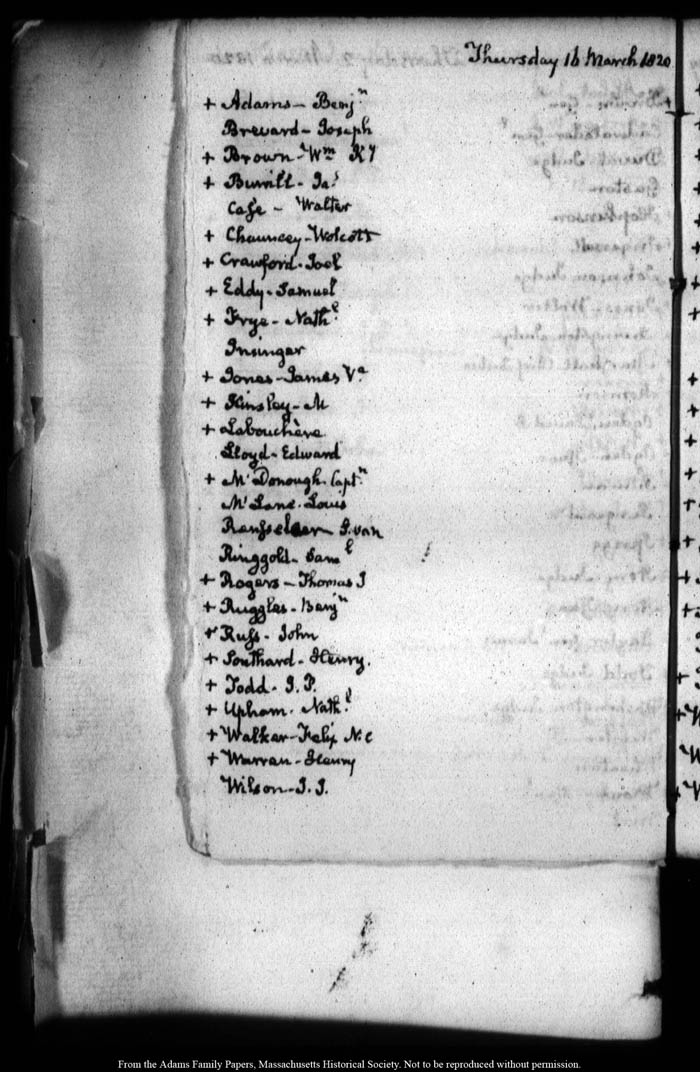 Thursday 16 March 1820
+ Adams - Benjn
Brevard - Joseph
+ Brown - Wm KY
+ Burrill - Jas
Case - Walter
+ Chauncey - Wolcott
+ Crawford - Joel
+ Eddy - Samuel
+ Frye - Nathl
Insinger
+ Jones - James Va
+ Kinsley - M
+ Labouchère
Lloyd - Edward
+ McDonough. Captn
McLane. Louis
Rensselaer - S. van
Ringgold - Saml
+ Rogers - Thomas J
+ Ruggles - Benjn
+ Russ - John
+ Southard - Henry.
+ Todd - J. P.
+ Upham. Nathl
+ Walker - Felix N. C
+ Warren - Henry
Wilson - J. J.
From the Adams Family Papers, Massachusetts Historical Society. Not to be reproduced without permission.